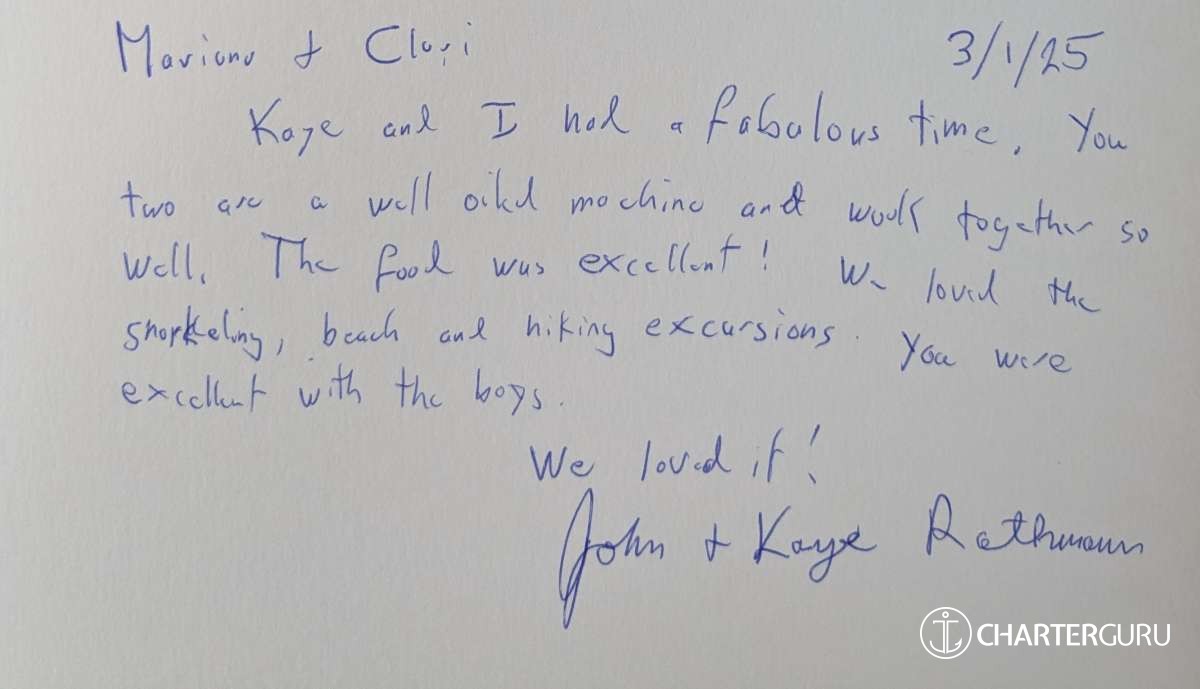 Mariano + Clari 3/1/25
Kaye and I had a fabulous time. You
two are a well oiled machine and work together so
well. The food was excellent! We loved the
snorkeling, beach and hiking excursions. You were
excellent with the boys.
We loved it!
John + Kaye Rathmann
CHARTERGURU